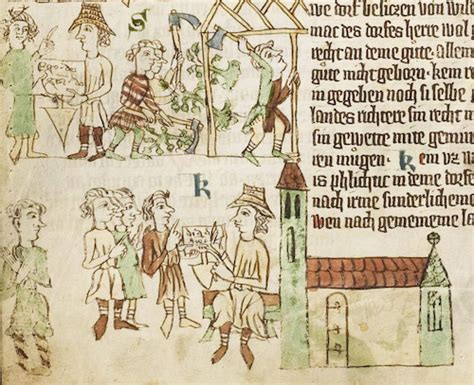 S
K
we dorf besiczen von
mac des dorfes herre wol
recht an deme gute
gute nicht geborn. kein
in gegeben noch si selbe
landes richtere sin recht
sin gewette mite
ren mugen. Kein vz
is phlichtic in deme dorfe
nach irme sunderlicheme
wen nach gemeineme la